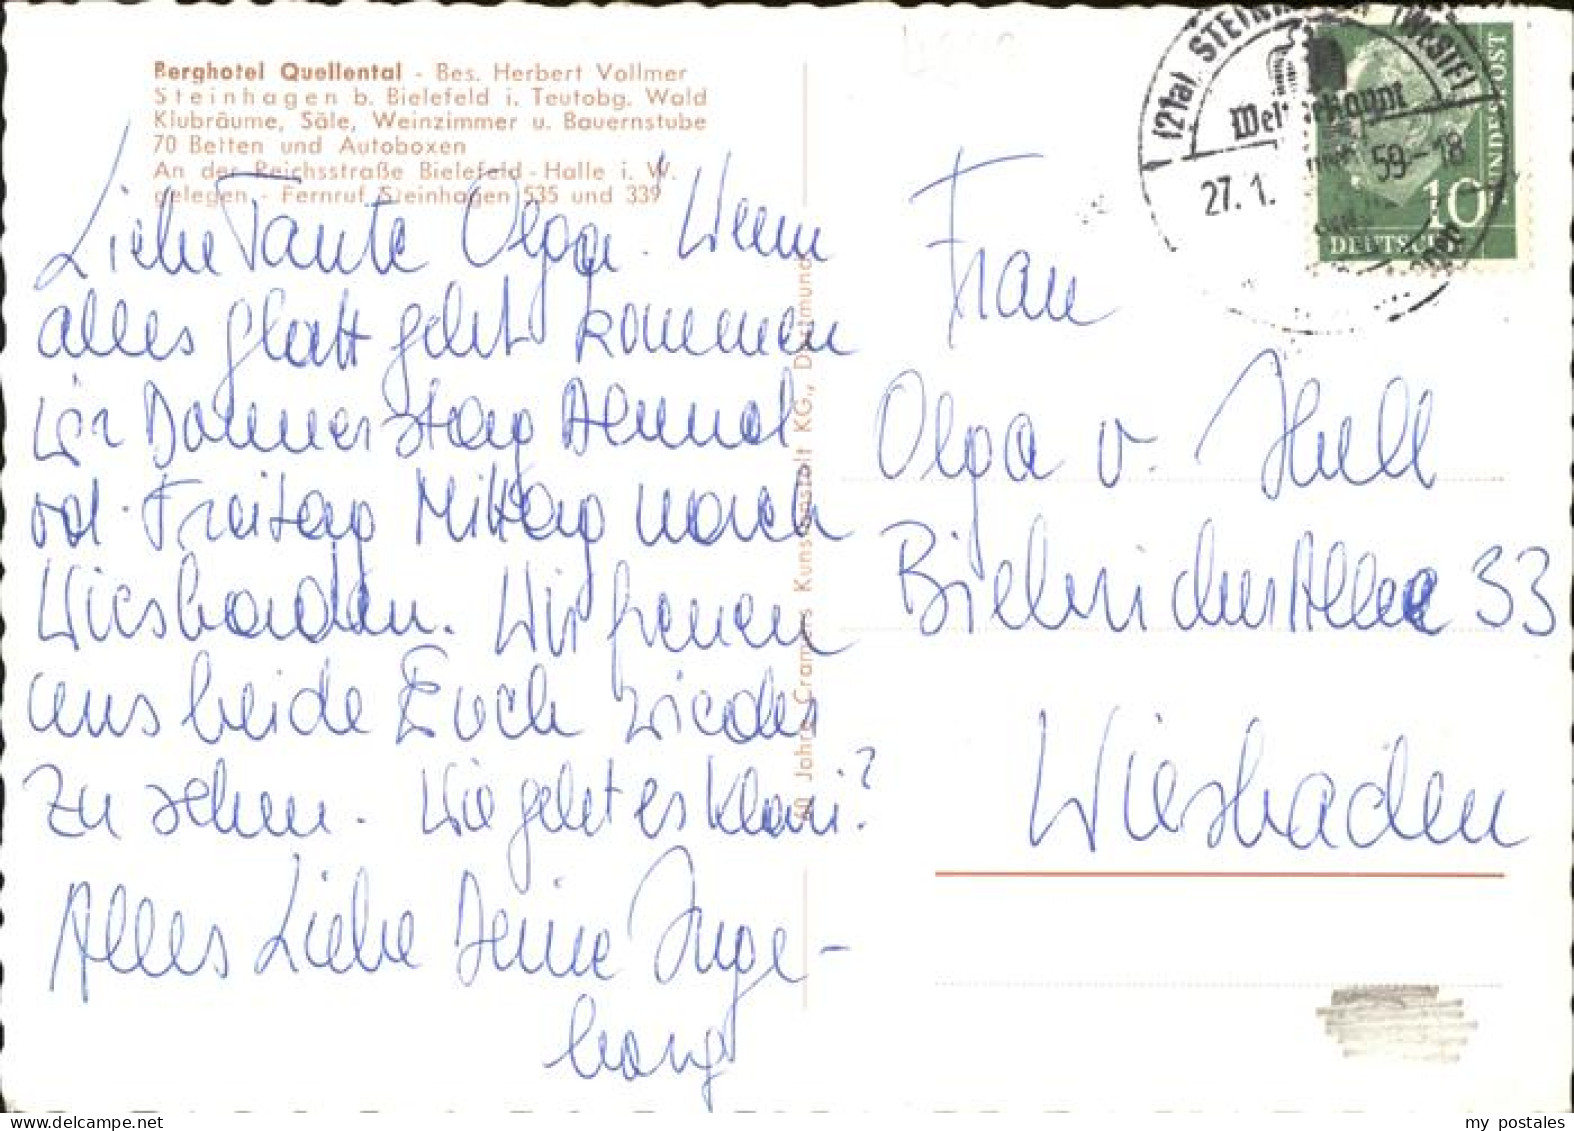 Berghotel Quellental - Bes. Herbert Vollmer
Steinhagen b. Bielefeld i. Teutobg. Wald
Klubräume, Säle, Weinzimmer u. Bauernstube
70 Betten und Autoboxen
An der Reichsstraße Bielefeld-Halle i. W.
gelegen - Fernruf Steinhagen 535 und 339
Liebe Tante Olga. Wenn
alles glatt geht kommen
wir Donnerstag Abend
od. Freitag Mittag nach
Wiesbaden. Wir freuen
uns beide Euch wieder
zu sehen. Wie geht es Klari?
Alles Liebe Deine Inge-
borg
60 Jahre Cramers Kunstanstalt KG., Dortmund
(21a) STEINHAGEN (WESTF)
Weltbekannt
27. 1. 59-18
10
DEUTSCHE
BUNDESPOST
Frau
Olga v. Hell
Biebricher Allee 33
Wiesbaden
my postales